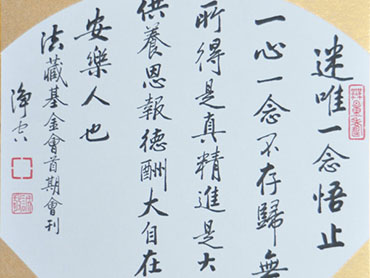 迷唯一念悟止
一心一念不存歸無
所得是真精進是大
供養恩報德酬大自在
安樂人也
法藏基金會首期會刊
淨空